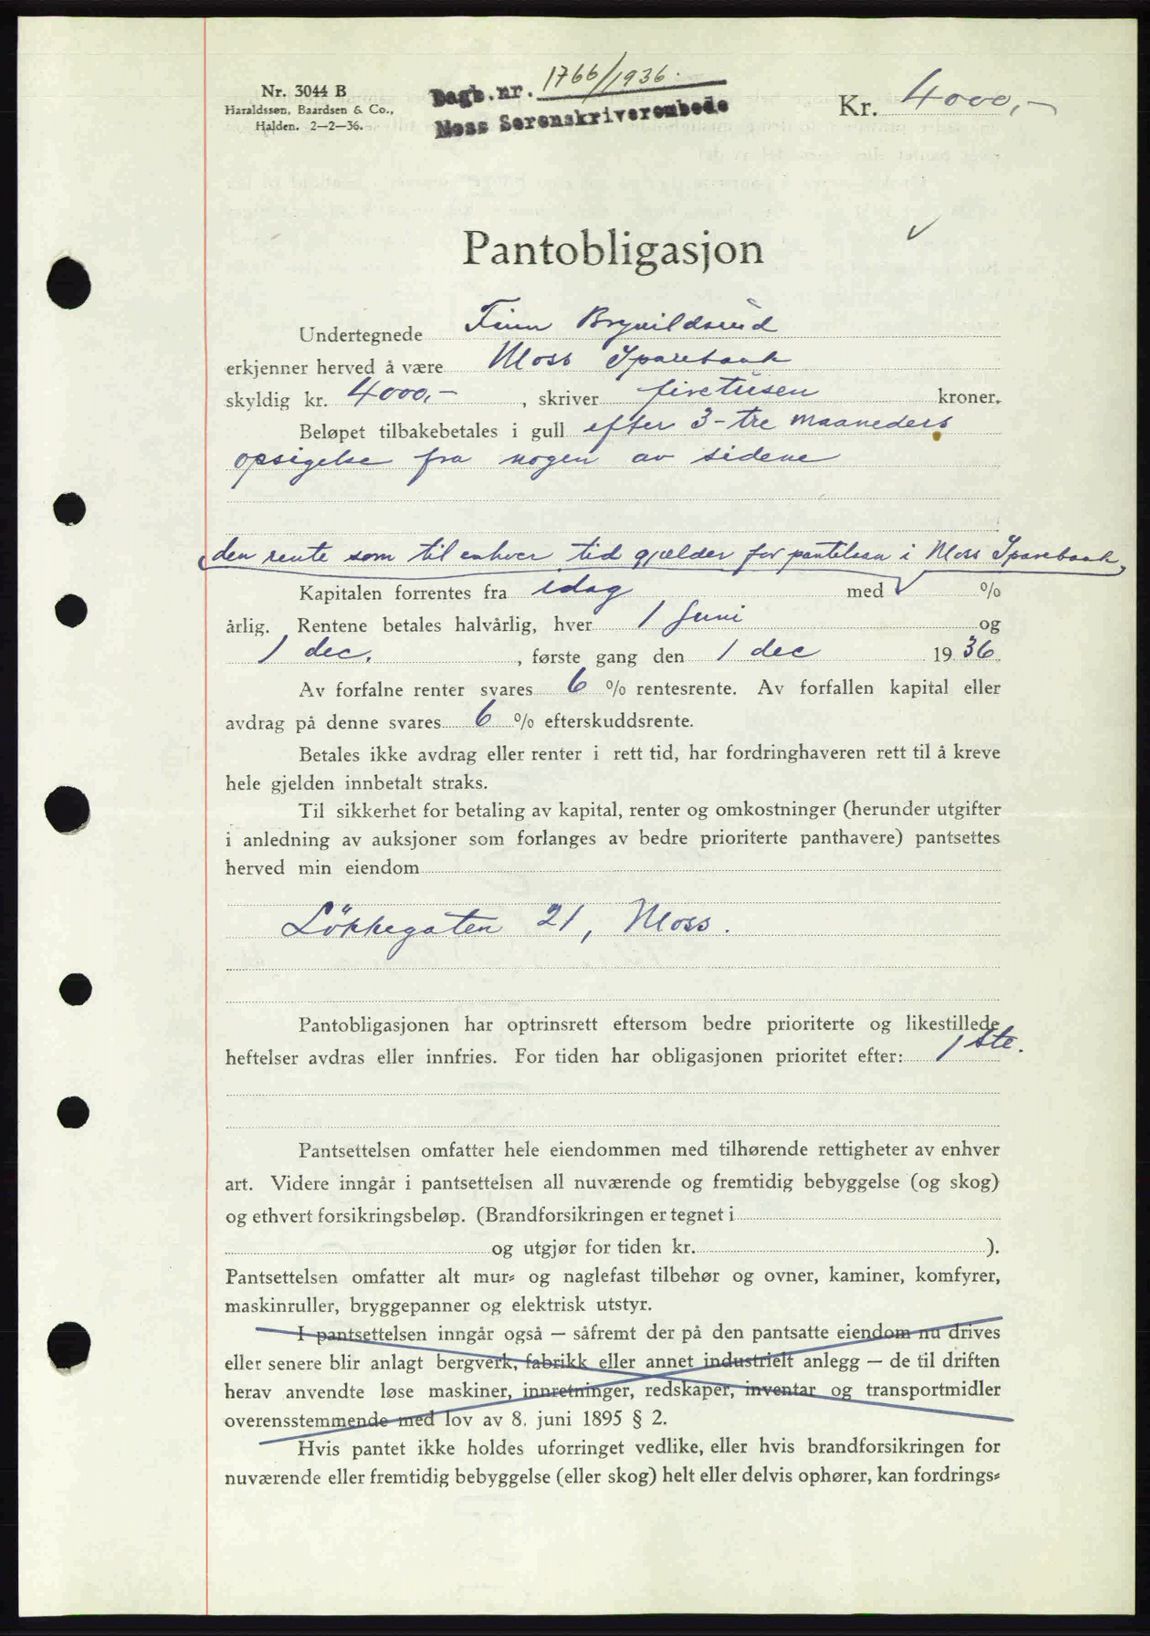 Nr. 3044 B
Haraldssen, Baardsen & Co.,
Halden. 2-2-36.
Dagb. nr. 1766/1936.
Moss Sorenskriverembede
Kr. 4000,-
Pantobligasjon
Undertegnede Finn Brynildsrud
erkjenner herved å være Moss Sparebank
skyldig kr. 4000,- , skriver firetusen kroner.
Beløpet tilbakebetales i gull efter 3-tre maaneders
opsigelse fra nogen av sidene
den rente som til enhver tid gjælder for pantelaan i Moss Sparebank,
Kapitalen forrentes fra idag med %
årlig. Rentene betales halvårlig, hver 1 Juni og
1 dec. , første gang den 1 dec 1936.
Av forfalne renter svares 6 % rentesrente. Av forfallen kapital eller
avdrag på denne svares 6 % efterskuddsrente.
Betales ikke avdrag eller renter i rett tid, har fordringhaveren rett til å kreve
hele gjelden innbetalt straks.
Til sikkerhet for betaling av kapital, renter og omkostninger (herunder utgifter
i anledning av auksjoner som forlanges av bedre prioriterte panthavere) pantsettes
herved min eiendom
Lökkegaten 21, Moss.
Pantobligasjonen har optrinsrett eftersom bedre prioriterte og likestillede
heftelser avdras eller innfries. For tiden har obligasjonen prioritet efter: 1ste.
Pantsettelsen omfatter hele eiendommen med tilhørende rettigheter av enhver
art. Videre inngår i pantsettelsen all nuværende og fremtidig bebyggelse (og skog)
og ethvert forsikringsbeløp. (Brandforsikringen er tegnet i
og utgjør for tiden kr. ).
Pantsettelsen omfatter alt mur- og naglefast tilbehør og ovner, kaminer, komfyrer,
maskinruller, bryggepanner og elektrisk utstyr.
I pantsettelsen inngår også — såfremt der på den pantsatte eiendom nu drives
eller senere blir anlagt bergverk, fabrikk eller annet industrielt anlegg — de til driften
herav anvendte løse maskiner, innretninger, redskaper, inventar og transportmidler
overensstemmende med lov av 8. juni 1895 § 2.
Hvis pantet ikke holdes uforringet vedlike, eller hvis brandforsikringen for
nuværende eller fremtidig bebyggelse (eller skog) helt eller delvis ophører, kan fordrings-